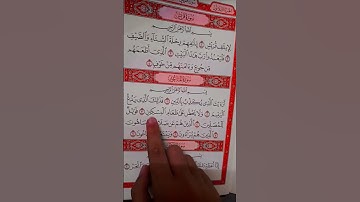 سورة قريش
بسم الله الرحمن الرحيم
لإيلاف قريش إيلافهم رحلة الشتاء والصيف
فليعبدوا رب هذا البيت الذي أطعمهم
من جوع وآمنهم من خوف
سورة الماعون
بسم الله الرحمن الرحيم
أرأيت الذي يكذب بالدين فذلك الذي يدع
اليتيم ولا يحض على طعام المسكين فويل
للمصلين الذين هم عن صلاتهم ساهون
الذين هم يراءون ويمنعون الماعون